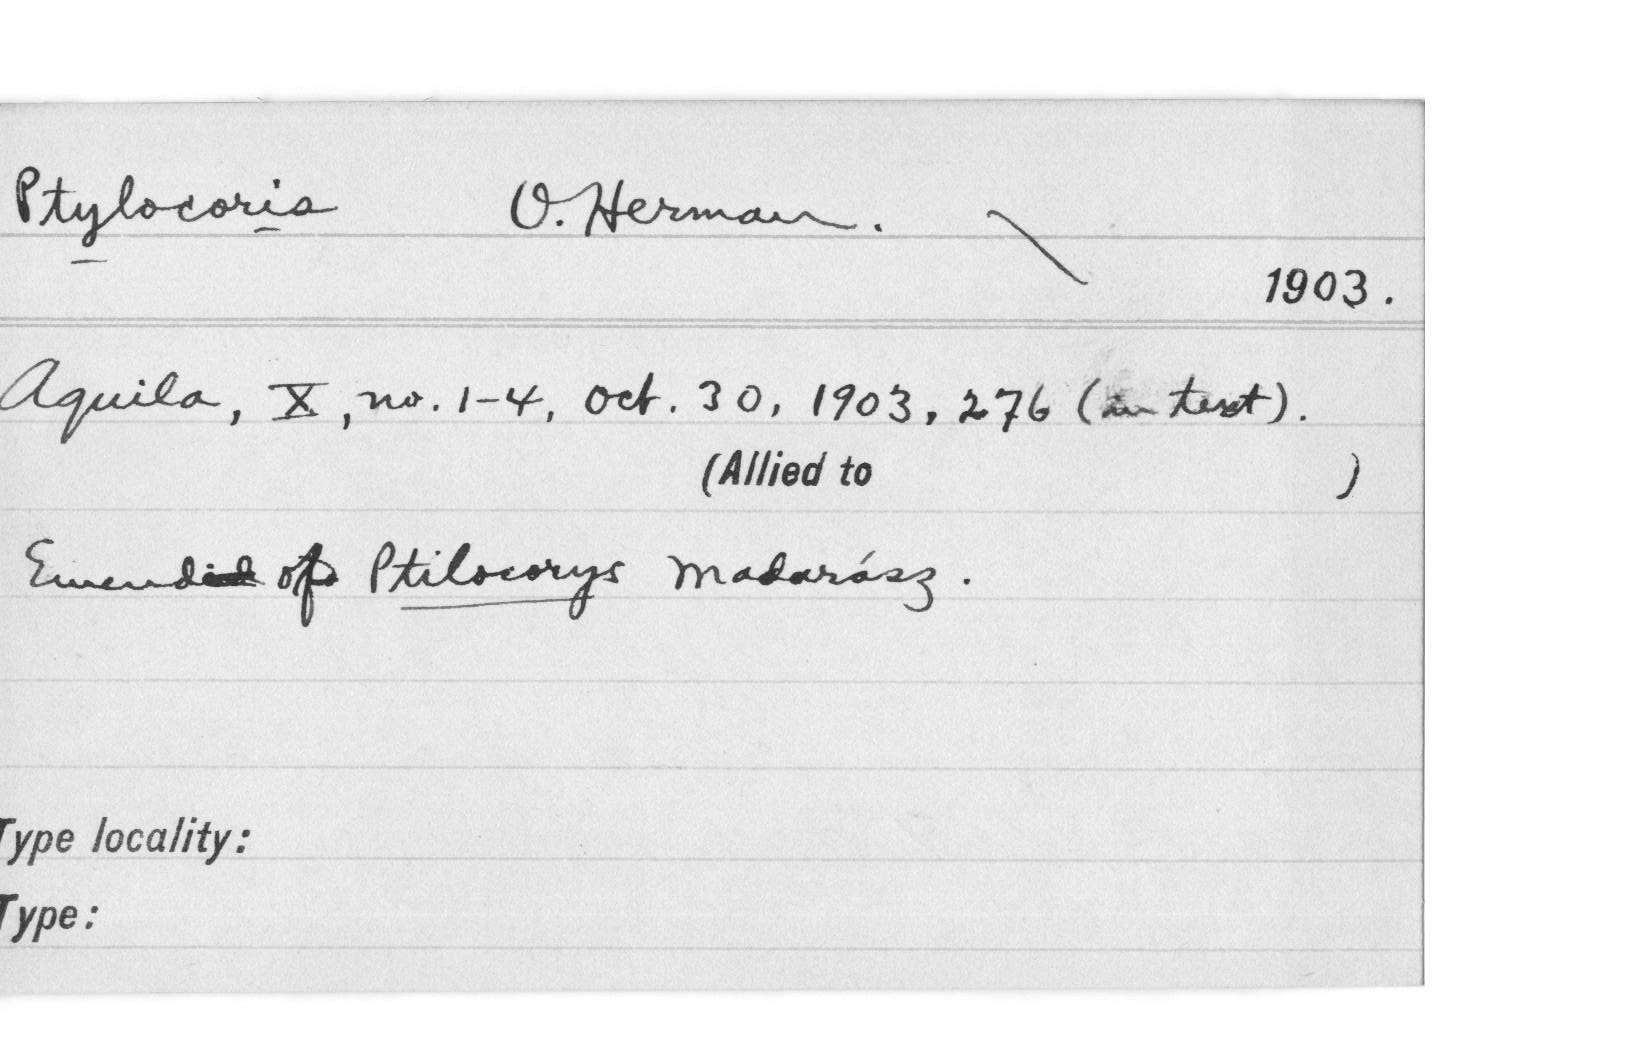 Ptylocoris O. Herman.
1903.
Aquila, X, no. 1-4, Oct. 30, 1903, 276 (in text).
(Allied to )
Emend of Ptilocorys Madarász.
Type locality:
Type: